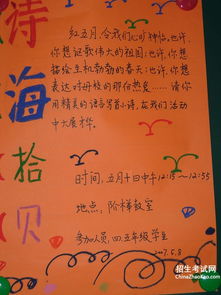 诗海拾贝
红五月,令我们心旷神怡。也许,
你想讴歌伟大的祖国;也许,你想
描绘生机勃勃的春天;也许,你想
表达对母校的那份热爱……请你
用精美的语言写首小诗,在我们活动
中大展才华。
时间:五月十日中午12:15～12:55
地点:阶梯教室
参加人员:四、五年级学生
2007.5.8
招生考试网
ChinaZhaoKao.com